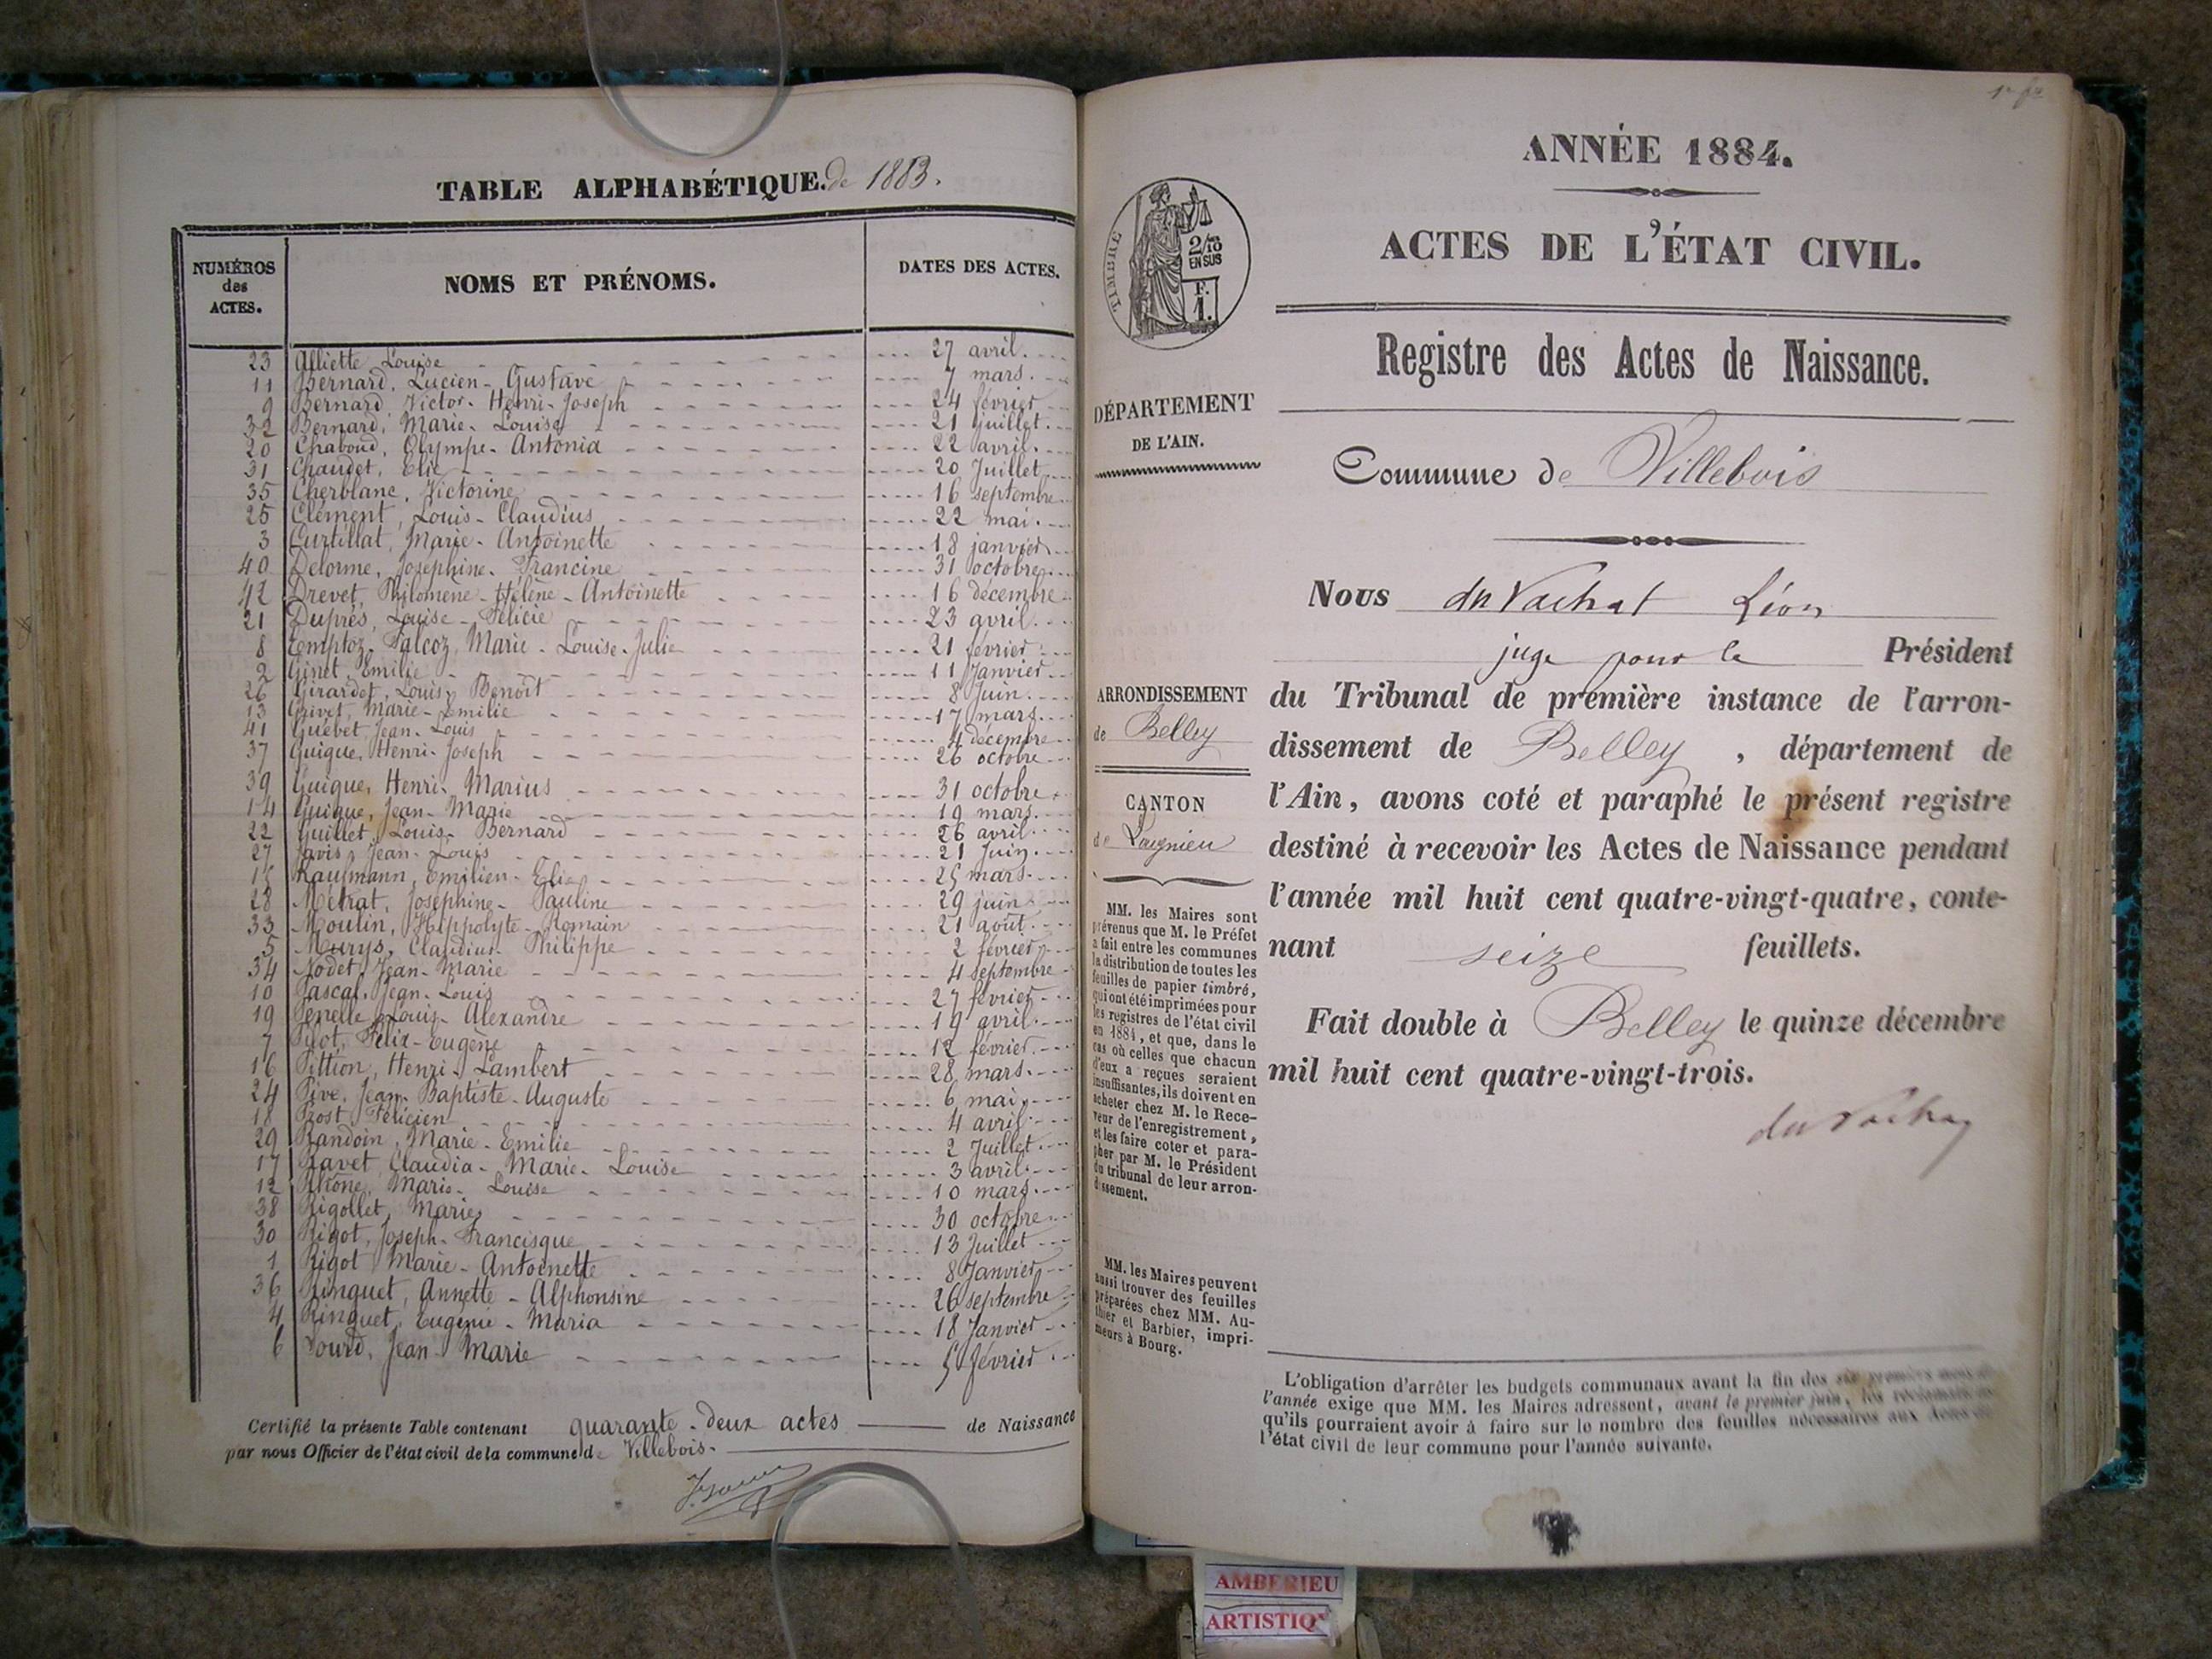 TABLE ALPHABÉTIQUE. de 1883.
NUMÉROS des ACTES. NOMS ET PRÉNOMS. DATES DES ACTES.
23 Alliette Louise 27 avril.
11 Bernard, Lucien-Gustave 7 mars.
9 Bernard, Victor-Henri-Joseph 24 février
32 Bernard, Marie-Louise 21 juillet.
20 Chaboud, Olympe-Antonia 22 avril.
31 Chaudet, Elie 20 Juillet
35 Cherblanc, Victorine 16 septembre
25 Clément, Louis-Claudius 22 mai.
3 Curtillat, Marie-Antoinette 18 janvier
40 Delorme, Joséphine-Francine 31 octobre
42 Drevet, Philomène-Hélène-Antoinette 16 décembre
21 Duprés, Louise-Félicie 23 avril.
8 Emptoz-Falcoz, Marie-Louise-Julie 21 février
2 Ginet, Emilie 11 Janvier
26 Girardet, Louis, Benoît 8 Juin.
13 Grivet, Marie-Emilie 17 mars.
41 Guébet, Jean-Louis 4 décembre
37 Guigue, Henri-Joseph 26 octobre
39 Guigue, Henri-Marius 31 octobre
14 Guigue, Jean-Marie 19 mars.
22 Guillet, Louis-Bernard 26 avril
27 Javis, Jean-Louis 21 Juin.
15 Kaufmann, Emilien-Elie 25 mars.
28 Métrat, Joséphine-Pauline 29 juin
33 Moulin, Hippolyte-Romain 21 août.
5 Murys, Claudius-Philippe 2 février
34 Nodet, Jean-Marie 4 septembre
10 Pascal, Jean-Louis 27 février
19 Penelle, Louis-Alexandre 19 avril.
7 Pilot, Félix-Eugène 12 février.
16 Pittion, Henri-Lambert 28 mars.
24 Pive, Jean-Baptiste-Auguste 6 mai.
18 Prost, Félicien 4 avril
29 Randoin, Marie-Emilie 2 Juillet
17 Ravet, Claudia-Marie-Louise 3 avril.
12 Rhône, Marie-Louise 10 mars.
38 Rigollet, Marie 30 octobre
30 Rigot, Joseph-Francisque 13 Juillet
1 Rigot Marie-Antoinette 8 Janvier
36 Ringuet, Annette-Alphonsine 26 septembre
4 Ringuet, Eugénie-Maria 18 Janvier
6 Sourd, Jean-Marie 5 février
Certifié la présente Table contenant quarante-deux actes de Naissance
par nous Officier de l'état civil de la commune de Villebois.
ANNÉE 1884.
ACTES DE L'ÉTAT CIVIL.
TIMBRE
2/10
EN SUS
F.
1.
Registre des Actes de Naissance.
DÉPARTEMENT
DE L'AIN.
Commune de Villebois
Nous du Vachat Léon
juge pour le Président
ARRONDISSEMENT
de Belley
du Tribunal de première instance de l'arron-
dissement de Belley, département de
l'Ain, avons coté et paraphé le présent registre
CANTON
de Lagnieu
destiné à recevoir les Actes de Naissance pendant
l'année mil huit cent quatre-vingt-quatre, conte-
nant seize feuillets.
Fait double à Belley le quinze décembre
mil huit cent quatre-vingt-trois.
du Vachat
MM. les Maires sont
prévenus que M. le Préfet
a fait entre les communes
la distribution de toutes les
feuilles de papier timbré,
qui ont été imprimées pour
les registres de l'état civil
en 1884, et que, dans le
cas où celles que chacun
d'eux a reçues seraient
insuffisantes, ils doivent en
acheter chez M. le Rece-
veur de l'enregistrement,
et les faire coter et para-
pher par M. le Président
du tribunal de leur arron-
dissement.
MM. les Maires peuvent
aussi trouver des feuilles
préparées chez MM. Au-
thier et Barbier, impri-
meurs à Bourg.
L'obligation d'arrêter les budgets communaux avant la fin des six premiers mois de
l'année exige que MM. les Maires adressent, avant le premier juin, les réclamations
qu'ils pourraient avoir à faire sur le nombre des feuilles nécessaires aux Actes de
l'état civil de leur commune pour l'année suivante.
AMBERIEU
ARTISTIQ